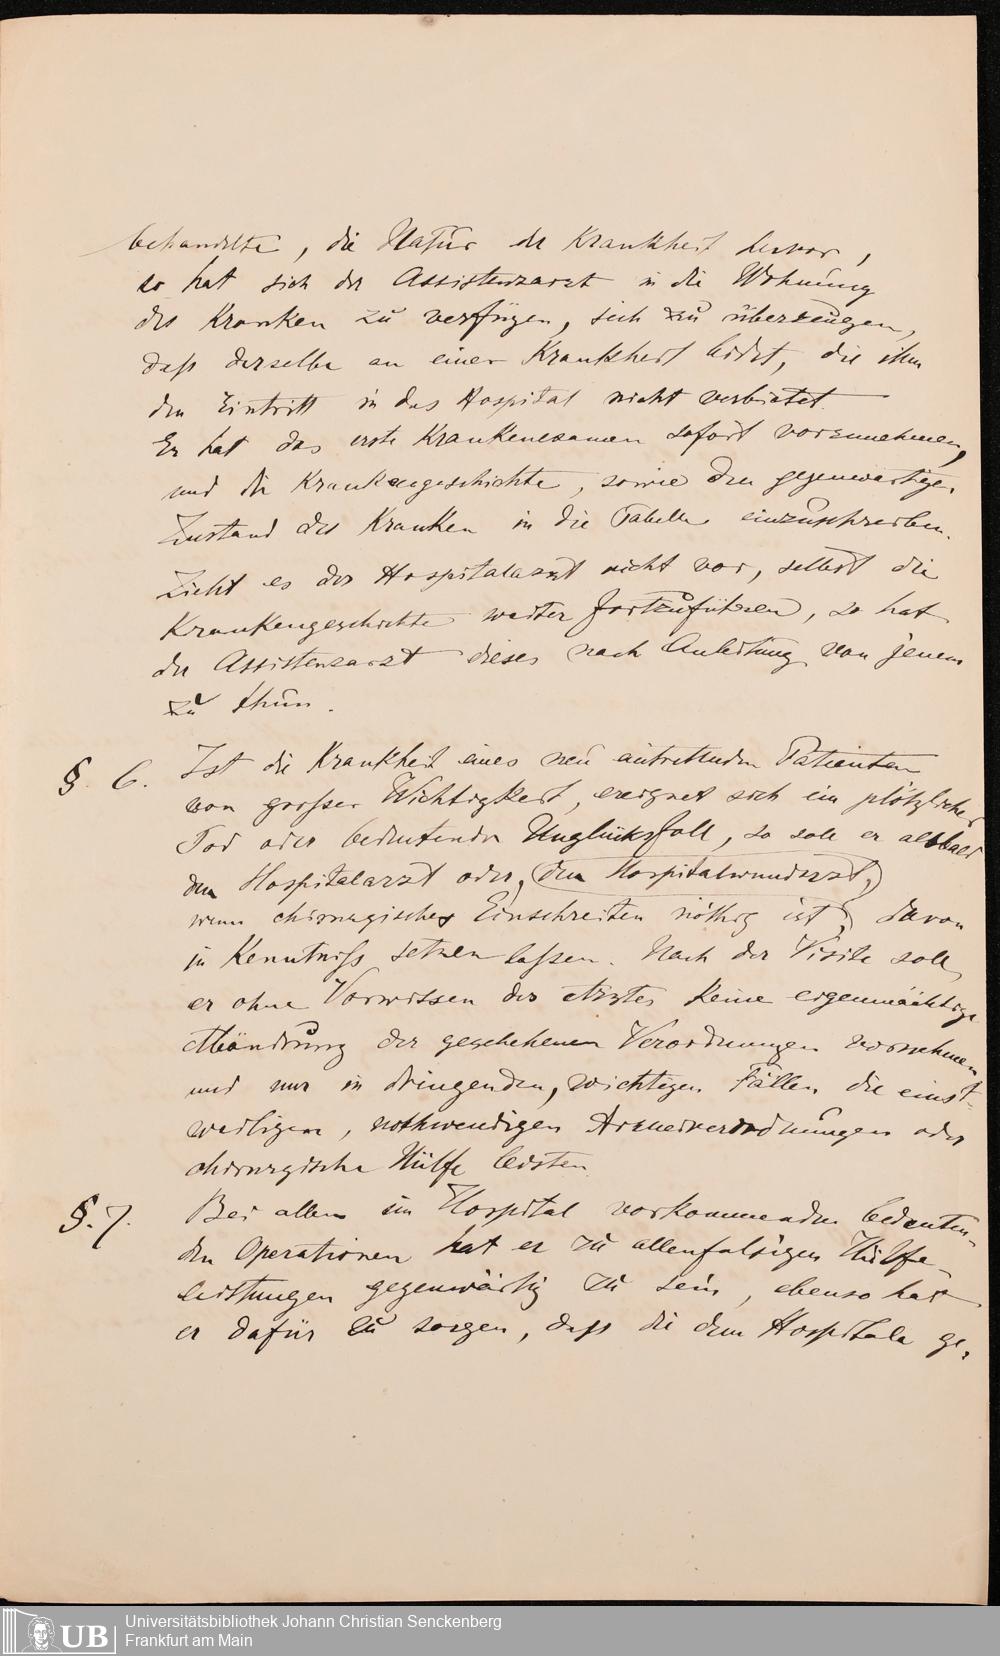 behandelte, die Natur der Krankheit hervor,
so hat sich der Assistenzarzt in die Wohnung
des Kranken zu verfügen, sich zu überzeugen,
daß derselbe an einer Krankheit leidet, die ihm
den Eintritt in das Hospital nicht verbietet.
Er hat das erste Krankenexamen sofort vorzunehmen,
und die Krankengeschichte, sowie den gegenwärtigen
Zustand des Kranken in die Tabelle einzuschreiben.
Zieht es der Hospitalarzt nicht vor, selbst die
Krankengeschichte weiter fortzuführen, so hat
der Assistenzarzt dieses nach Anleitung von jenem
zu thun.
§. 6. Ist die Krankheit eines neu eintretenden Patienten
von großer Wichtigkeit, ereignet sich ein plötzlicher
Tod oder bedeutender Unglücksfall, so soll er alsbald
den Hospitalarzt oder, (den Hospitalwundarzt,)
wenn chirurgisches Einschreiten nöthig ist, davon
in Kenntniß setzen laßen. Nach der Visite soll
er ohne Vorwissen des Arztes keine eigenmächtige
Abänderung der geschehenen Verordnungen vornehmen
und nur in dringenden, wichtigen Fällen die einst-
weiligen, nothwendigen Arzneiverordnungen oder
chirurgische Hülfe leisten.
§. 7. Bei allen im Hospital vorkommenden bedeuten-
den Operationen hat er zu allenfalsigen Hülfe-
leistungen gegenwärtig zu sein, ebenso hat
er dafür zu sorgen, daß die dem Hospitale ge-
UB Universitätsbibliothek Johann Christian Senckenberg
Frankfurt am Main